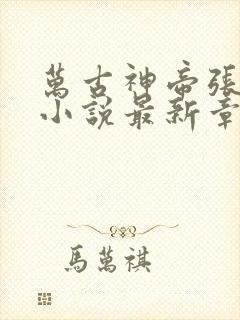 萬古神帝張
小說最新章
馬萬祺